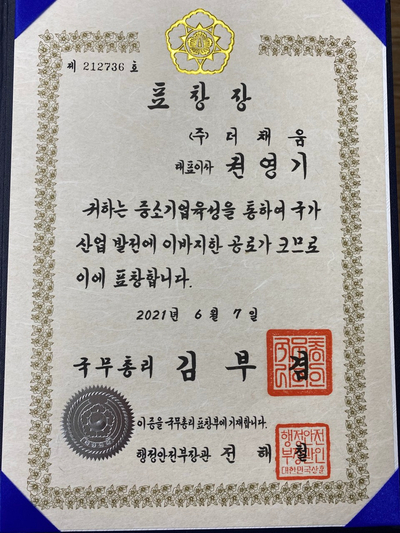 제 212736 호
표 창 장
(주) 더 채 움
대표이사 권 영 기
귀하는 중소기업육성을 통하여 국가
산업 발전에 이바지한 공로가 크므로
이에 표창합니다.
2021년 6월 7일
국무총리 김 부 겸
이 증을 국무총리 표창부에 기재합니다.
행정안전부장관 전 해 철
행정안전
부장관인
대한민국상훈